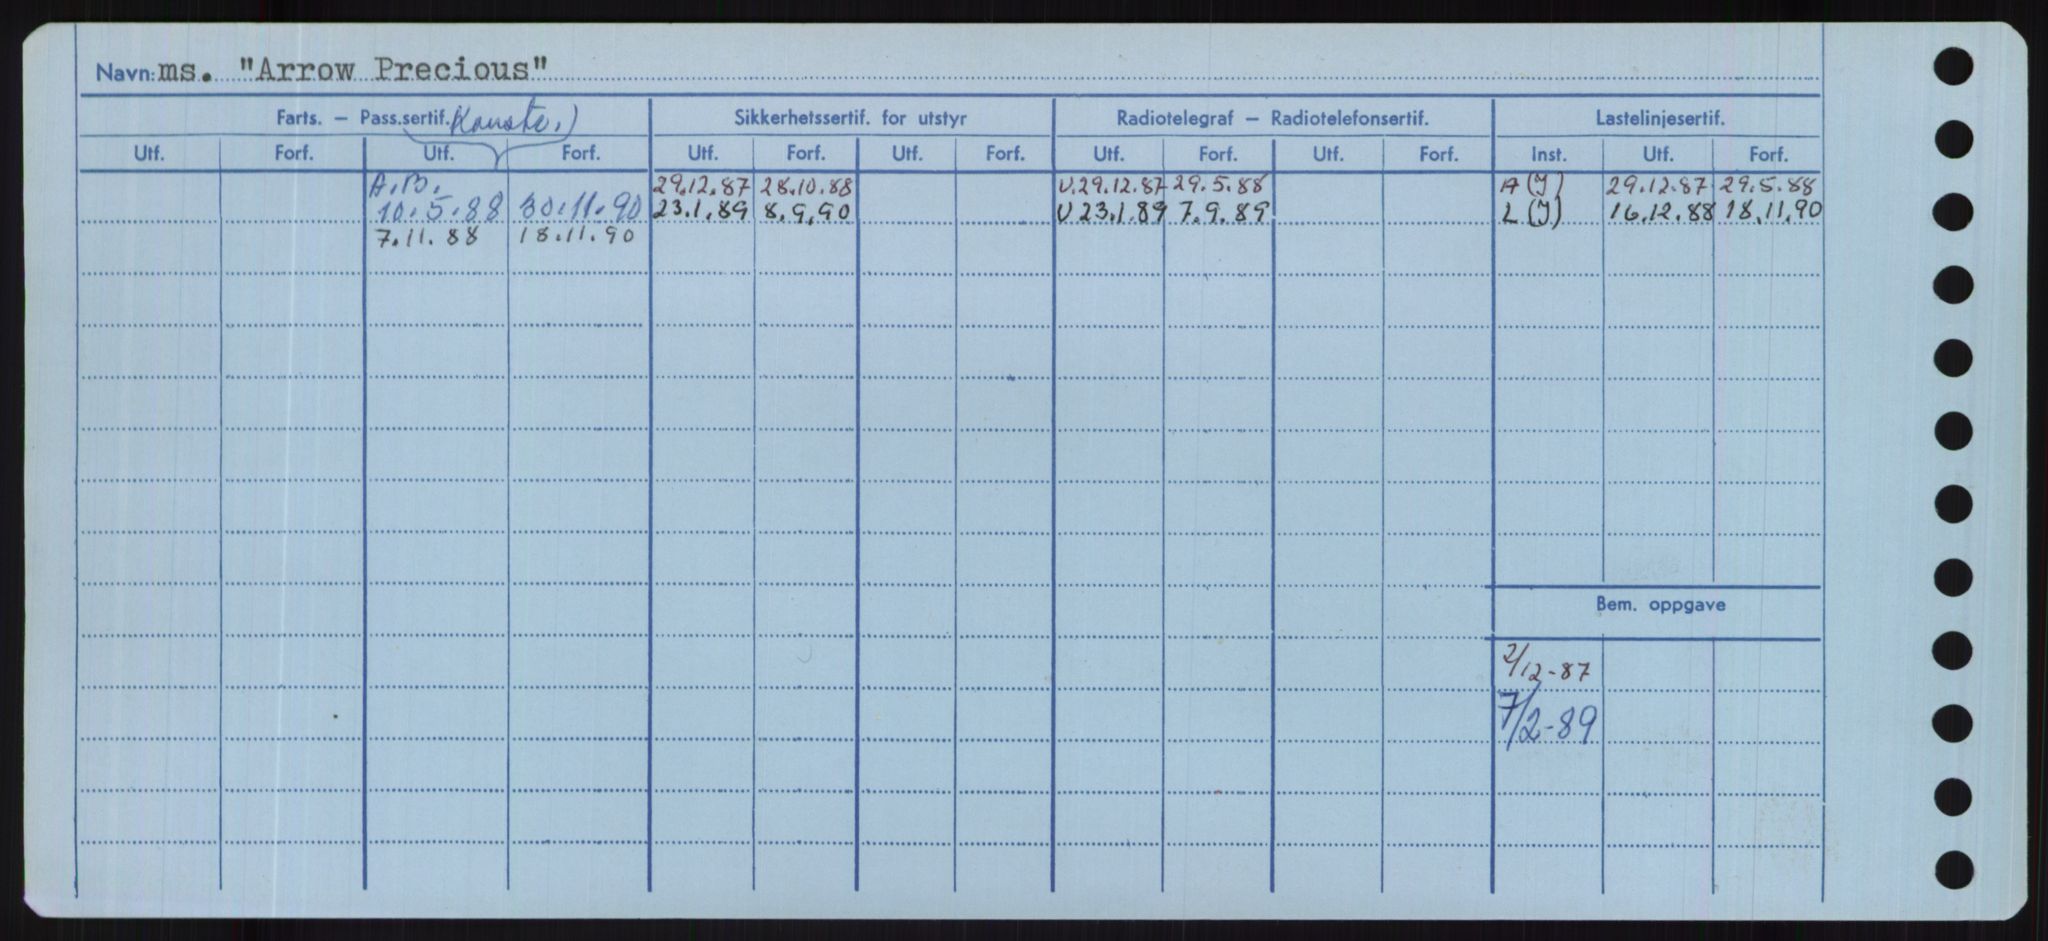 Navn: ms. "Arrow Precious"
Farts. – Pass.sertif. Sikkerhetssertif. for utstyr Radiotelegraf – Radiotelefonsertif. Lastelinjesertif.
Utf. Forf. Utf. Forf. Utf. Forf. Utf. Forf. Utf. Forf. Utf. Forf. Inst. Utf. Forf.
A.B. 29.12.87 28.10.88 U.29.12.87 29.5.88 A (J) 29.12.87 29.5.88
10.5.88 30.11.90 23.1.89 8.9.90 U 23.1.89 7.9.89 L (J) 16.12.88 18.11.90
7.11.88 18.11.90
Bem. oppgave
2/12-87
7/2-89